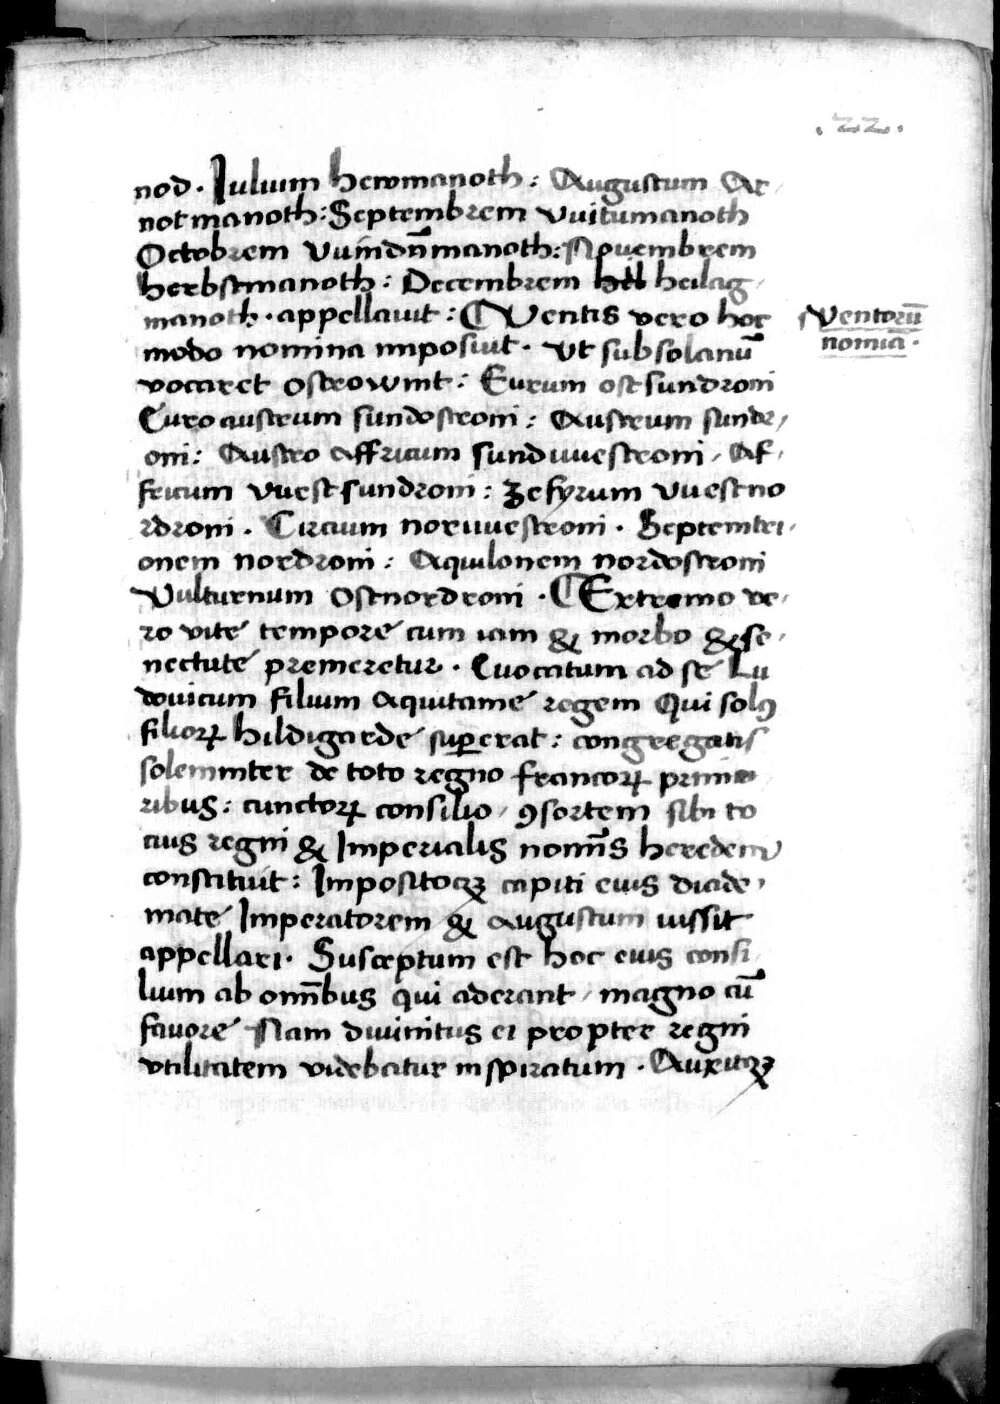 .22.
nod. Iulium hewmanoth: Augustum Ar
notmanoth: Septembrem vvitumanoth
Octobrem vvindūmanoth: Nouembrem
herbstmanoth: Decembrem heilag
manoth. appellauit: Ventis vero hoc
Ventorū
modo nomina imposuit. Vt subsolanū
nomīa.
vocaret ostrowint: Eurum ostsundroni
Euroaustrum sundostroni: Austrum sundr
oni: Austro affricum sundvvestroni, Af
fricum vvestsundroni: Zefyrum vvestno
rdroni. Circium norvvestroni. Septemtri
onem nordroni: Aquilonem nordostroni
Vulturnum ostnordroni. Extremo ve
ro vite tempore cum iam & morbo & se
nectute premeretur. Euocatum ad se Lu
douicum filium aquitanie regem Qui solꝰ
filioꝝ hildigarde suꝑerat: congregatis
solemniter de toto regno francoꝝ primo
ribus: cunctoꝝ consilio, ꝯsortem sibi to
cius regni & Imperialis nomīs heredem
constituit: Impositoqꝫ capiti eius diade
mate Imperatorem & augustum iussit
appellari. Susceptum est hoc eius consi
lium ab omībus qui aderant, magno cū
fauore Nam diuinitus ei propter regni
vtilitatem videbatur inspiratum. Auxitqꝫ